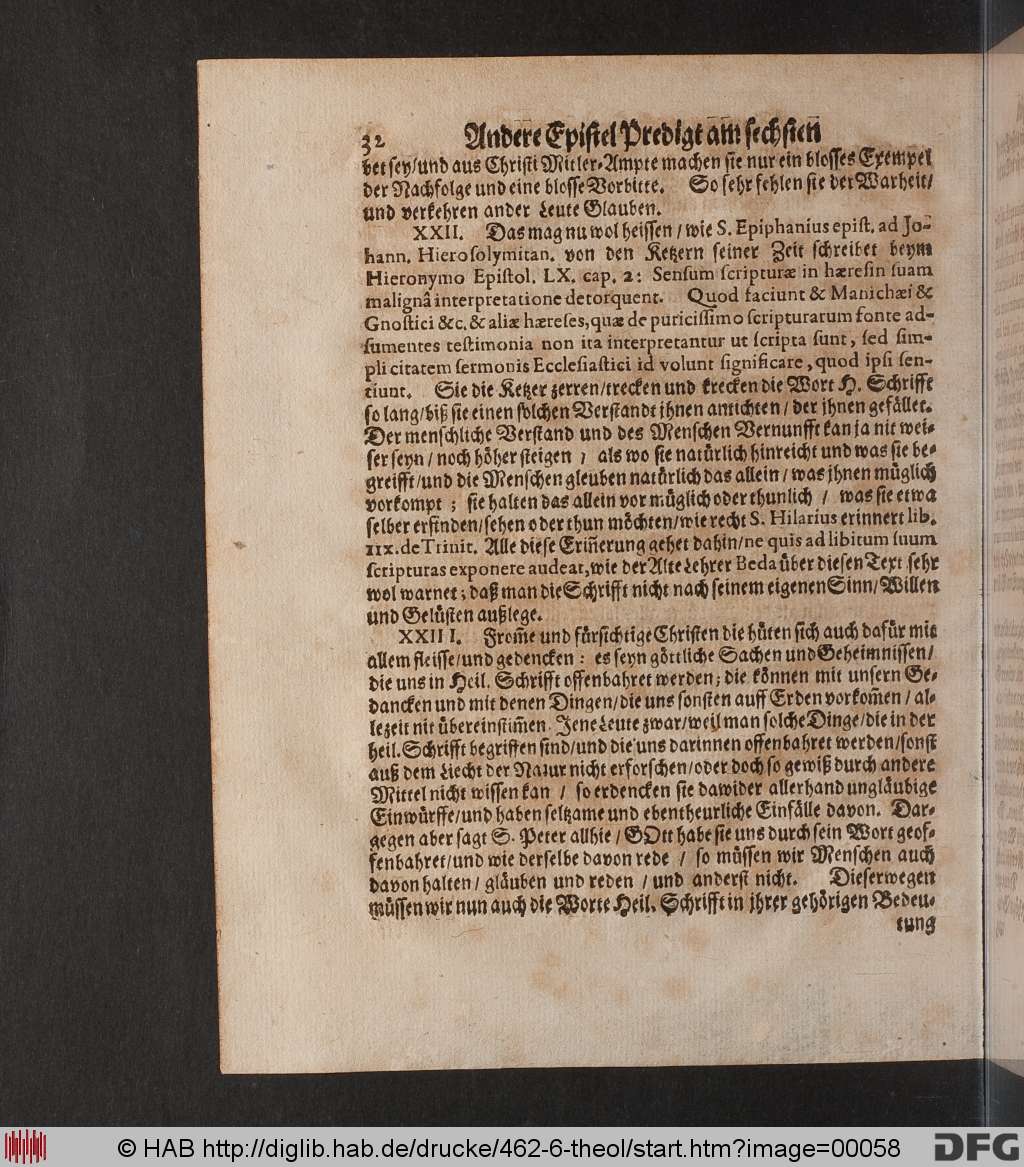 32 Andere Epistel Predigt am sechsten
bet sey/und aus Christi Mitler-Ampte machen sie nur ein blosses Exempel
der Nachfolge und eine blosse Vorbitte. So sehr fehlen sie der Warheit/
und verkehren ander Leute Glauben.
XXII. Das mag nu wol heissen/wie S. Epiphanius epist. ad Jo-
hann. Hierosolymitan. von den Ketzern seiner Zeit schreibet beym
Hieronymo Epistol. LX. cap. 2: Sensum scripturæ in hæresin suam
malignâ interpretatione detorquent. Quod faciunt & Manichæi &
Gnostici &c. & aliæ hæreses, quæ de puricissimo scripturarum fonte ad-
sumentes testimonia non ita interpretantur ut scripta sunt, sed sim-
plicitatem sermonis Ecclesiastici id volunt significare, quod ipsi sen-
tiunt. Sie die Ketzer zerren/trecken und krecken die Wort H. Schrifft
so lang/biß sie einen solchen Verstandt jhnen antichten/der jhnen gefället.
Der menschliche Verstand und des Menschen Vernunfft kan ja nit wei-
ser seyn/noch höher steigen, als wo sie natürlich hinreicht und was sie be-
greifft/und die Menschen gleuben natürlich das allein/was ihnen müglich
vorkompt; sie halten das allein vor müglich oder thunlich/was sie etwa
selber erfinden/sehen oder thun möchten/wie recht S. Hilarius erinnert lib.
IIX. de Trinit. Alle diese Eriñerung gehet dahin/ne quis ad libitum suum
scripturas exponere audeat, wie der Alte Lehrer Beda über diesen Text sehr
wol warnet; daß man die Schrifft nicht nach seinem eigenen Sinn/Willen
und Gelüsten außlege.
XXIII. From̃e und fürsichtige Christen die hüten sich auch dafür mit
allem fleisse/und gedencken: es seyn göttliche Sachen und Geheimnissen/
die uns in Heil. Schrifft offenbahret werden; die können mit unsern Ge-
dancken und mit denen Dingen/die uns sonsten auff Erden vorkom̃en/al-
lezeit nit übereinstim̃en. Jene Leute zwar/weil man solche Dinge/die in der
heil. Schrifft begriffen sind/und die uns darinnen offenbahret werden/sonst
auß dem Liecht der Natur nicht erforschen/oder doch so gewiß durch andere
Mittel nicht wissen kan/so erdencken sie dawider allerhand ungläubige
Einwürffe/und haben seltzame und ebentheurliche Einfälle davon. Dar-
gegen aber sagt S. Peter allhie/GOtt habe sie uns durch sein Wort geof-
fenbahret/und wie derselbe davon rede/so müssen wir Menschen auch
davon halten/gläuben und reden/und anderst nicht. Dieserwegen
müssen wir nun auch die Worte Heil. Schrifft in jhrer gehörigen Bedeu-
tung
© HAB http://diglib.hab.de/drucke/462-6-theol/start.htm?image=00058
DFG